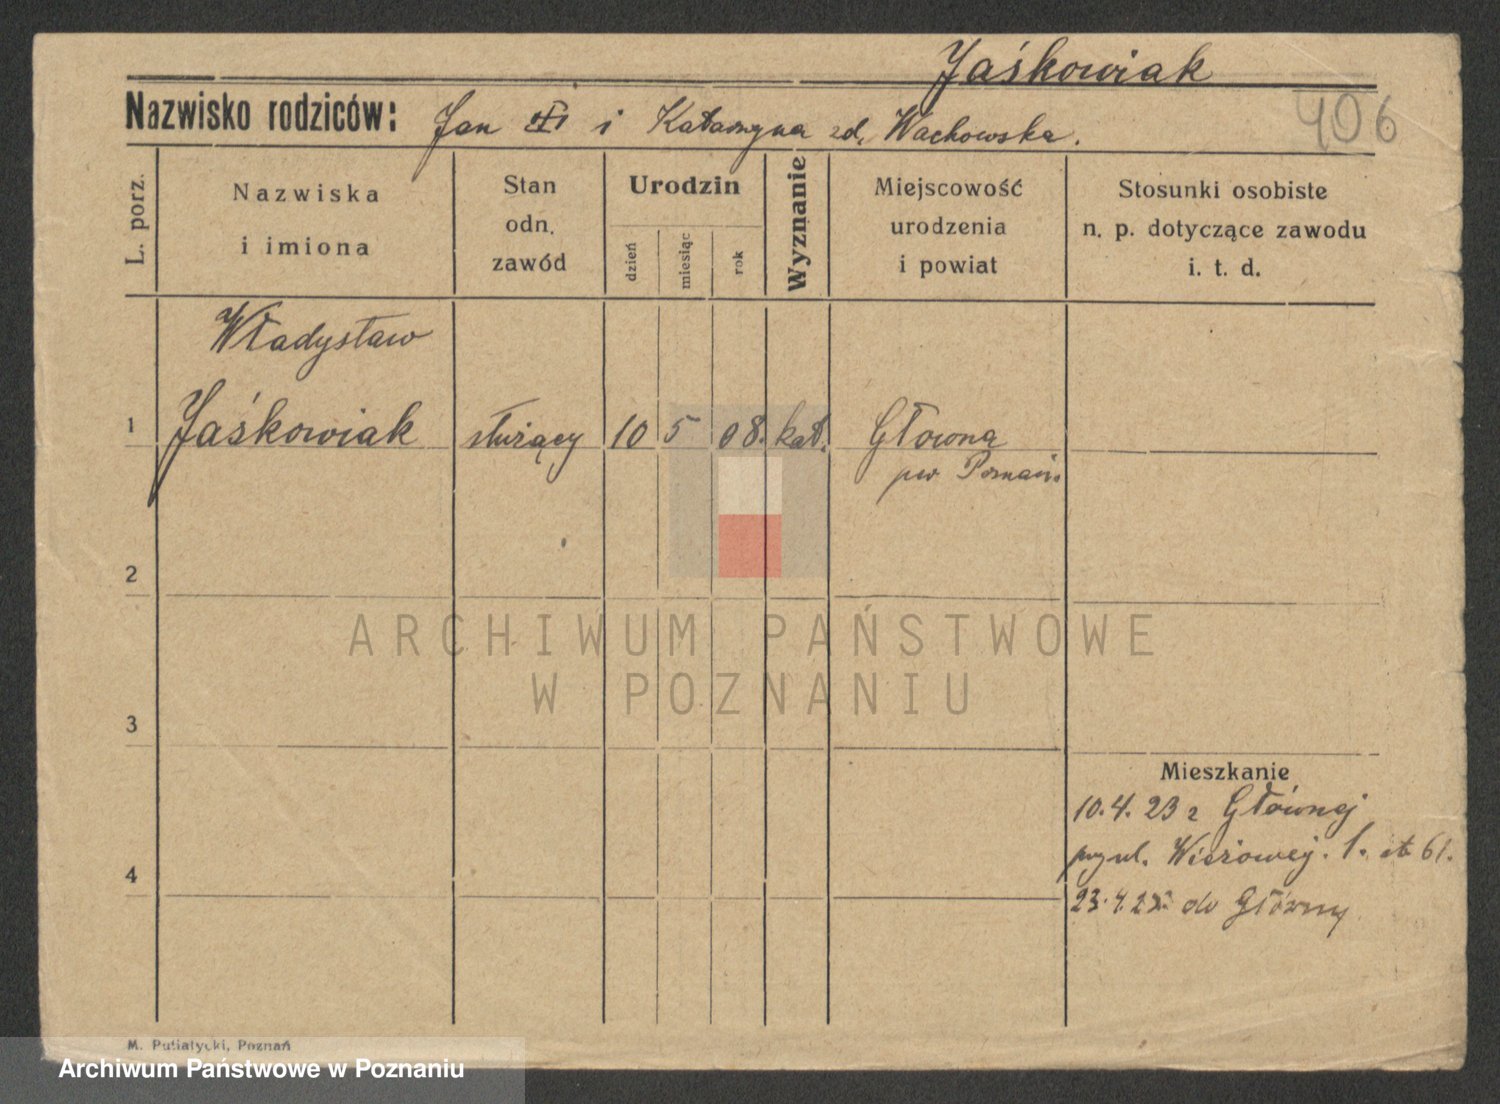 Jaśkowiak
Nazwisko rodziców: Jan i Katarzyna zd. Wachowska.
406
L. porz.
Nazwiska
i imiona
Stan
odn.
zawód
Urodzin
dzień
miesiąc
rok
Wyznanie
Miejscowość
urodzenia
i powiat
Stosunki osobiste
n. p. dotyczące zawodu
i. t. d.
Władysław
1 Jaśkowiak służący 10 5 08. kat. Głowna
pow Poznań.
2
3
4
Mieszkanie
10.4.23 z Głównej
przy ul. Wieżowej. 1. 61.
23.4. do Główny
M. Putiatycki, Poznań
ARCHIWUM PAŃSTWOWE
W POZNANIU
Archiwum Państwowe w Poznaniu